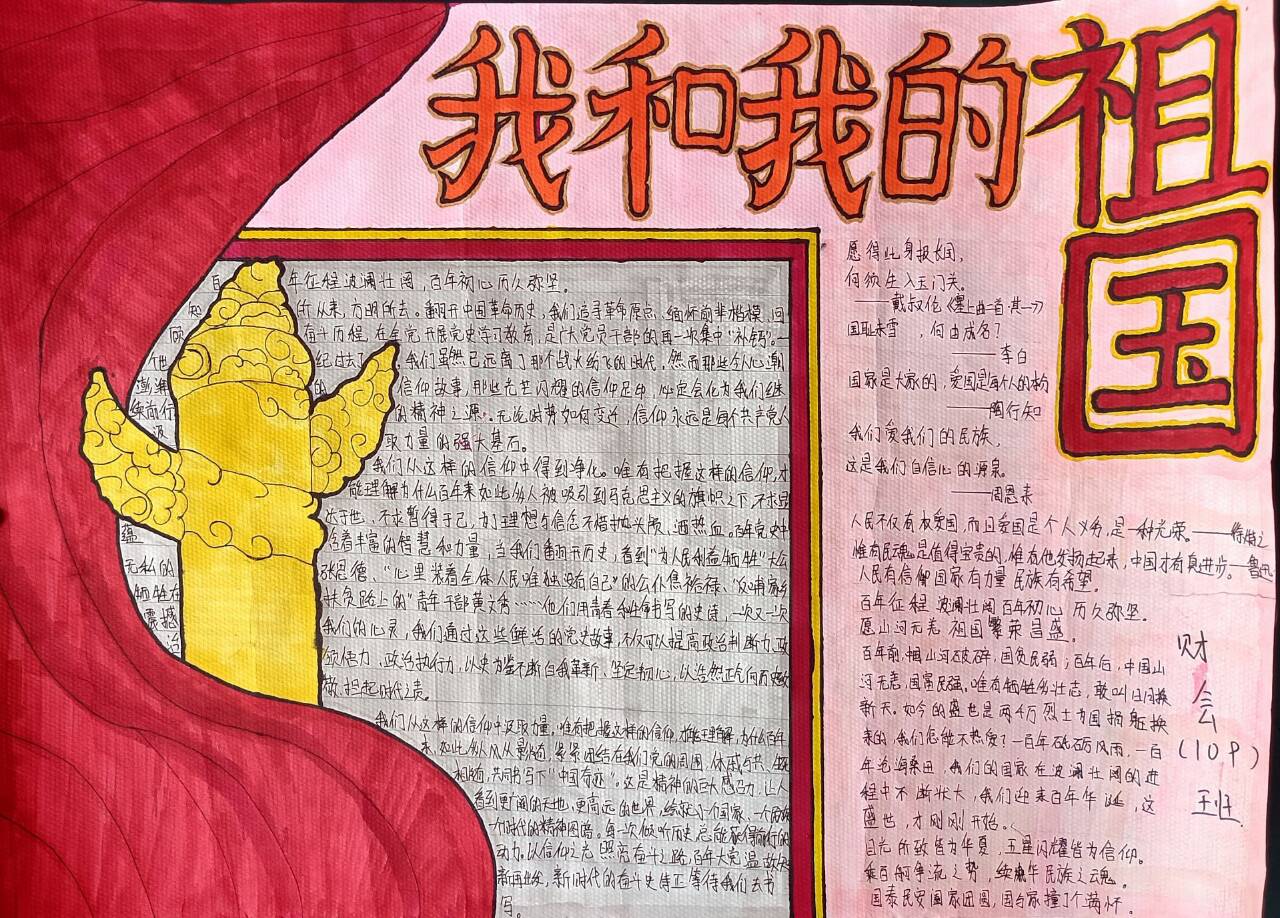 我和我的祖国
百年征程波澜壮阔，百年初心历久弥坚。
知所从来，方明所去。翻开中国革命历史，我们追寻革命原点、缅怀前辈楷模、回
顾奋斗历程，在全党开展党史学习教育，是广大党员干部的再一次集中“补钙”。一
个世纪过去了，我们虽然已远离了那个战火纷飞的时代，然而那些令人心潮
澎湃的信仰故事，那些光芒闪耀的信仰足印，必定会化为我们继
续前行的精神之源。无论时势如何变迁，信仰永远是每个共产党人
汲取力量的强大基石。
我们从这样的信仰中得到净化。唯有把握这样的信仰，才
能理解为什么百年来如此多人被吸引到马克思主义的旗帜之下，不求显
达于世、不求暂得于己，为了理想与信念不惜抛头颅、洒热血。百年党史中
蕴含着丰富的智慧和力量，当我们翻开历史，看到“为人民利益牺牲”
无私的张思德、“心里装着全体人民唯独没有自己”的公仆焦裕禄、反哺家乡
牺牲在扶贫路上的“青年干部黄文秀……他们用青春和生命书写的史诗，一次又一次
震撼我们的心灵，我们通过这些鲜活的党史故事，不仅可以提高政治判断力、政
治领悟力、政治执行力，以史为鉴不断自我革新、坚定初心，以浩然正气向历史致
敬，担起时代之责。
我们从这样的信仰中汲取力量，唯有把握这样的信仰，才能理解，为什么百年
来，如此多人风从影随，紧紧团结在我们党的周围，休戚与共、
相随，共同书写下“中国奇迹”。这是精神的巨大感召力，让人
看到更广阔的天地、更高远的世界，给予一个国家、一个民族
一个时代的精神图腾。每一次倾听历史，总能获得前行的
动力。以信仰之光照亮奋斗之路，百年大党温故知
新再出发，新时代的奋斗史诗正等待我们去书
写。
愿得此身报长国，
何须生入玉门关。
——戴叔伦《塞上曲二首·其一》
国耻未雪，何由成名？
——李白
国家是大家的，爱国是每个人的本分
——陶行知
我们爱我们的民族，
这是我们自信心的源泉。
——周恩来
人民不仅有权爱国，而且爱国是个人义务，是一种光荣。
唯有民魂是值得宝贵的，唯有他发扬起来，中国才有真进步。——鲁迅
人民有信仰 国家有力量 民族有希望。
百年征程 波澜壮阔 百年初心 历久弥坚。
愿山河无恙 祖国繁荣昌盛。
百年前，榻山河破碎，国贫民弱；百年后，中国山
河无恙，国富民强。唯有牺牲多壮志，敢叫日月换
新天。如今的盛世是两千万烈士为国捐躯换
来的，我们怎能不热爱？一百年砥砺风雨，一百
年沧海桑田，我们的国家在波澜壮阔的进
程中不断壮大，我们迎来百年华诞，这
盛世，才刚刚开始。
目光所致皆为华夏，五星闪耀皆为信仰。
乘百舸争流之势，续华民族之云魂。
国泰民安阖家团圆，国与家撞了个满怀。
财
会
（10P）
王妊